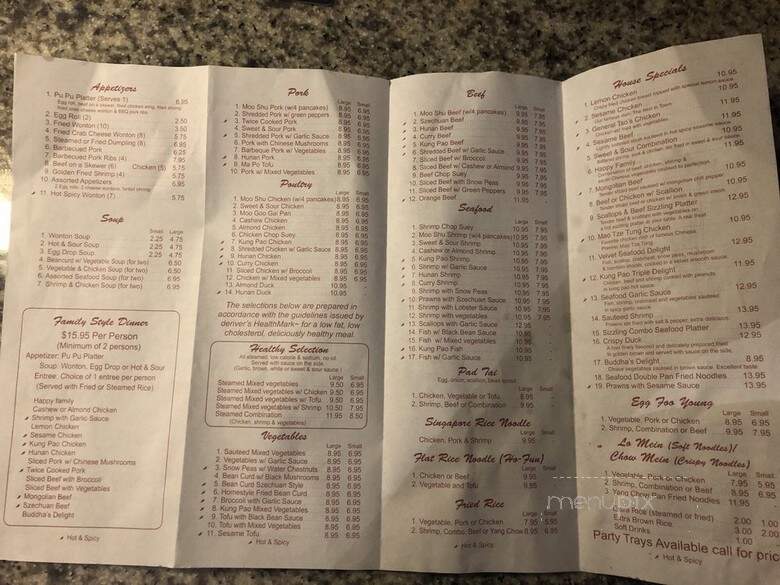 Appetizers
1. Pu Pu Platter (Serves 1) 6.95
2. Egg Roll (2) 2.50
3. Fried Wonton (10) 3.50
4. Fried Crab Cheese Wonton (8) 5.75
5. Steamed or Fried Dumpling (8) 6.95
6. Barbecued Pork 6.25
7. Barbecued Pork Ribs (4) 7.95
8. Beef on a Skewer (6) Chicken (5) 5.75
9. Golden Fried Shrimp (4) 5.75
10. Assorted Appetizers 6.95
11. Hot Spicy Wonton (7) 5.75
Soup
Small Large
1. Wonton Soup 2.25 4.75
2. Hot & Sour Soup 2.25 4.75
3. Egg Drop Soup 2.25 4.75
4. Beancurd w/ Vegetable Soup (for two) 6.50
5. Vegetable & Chicken Soup (for two) 6.50
6. Assorted Seafood Soup (for two) 7.95
7. Shrimp & Chicken Soup (for two) 7.95
Family Style Dinner
$15.95 Per Person
(Minimum of 2 persons)
Appetizer: Pu Pu Platter
Soup: Wonton, Egg Drop or Hot & Sour
Entree: Choice of 1 entree per person
(Served with Fried or Steamed Rice)
Happy family
Cashew or Almond Chicken
Shrimp with Garlic Sauce
Lemon Chicken
Sesame Chicken
Kung Pao Chicken
Hunan Chicken
Sliced Pork w/ Chinese Mushrooms
Twice Cooked Pork
Sliced Beef with Broccoli
Sliced Beef with Vegetables
Mongolian Beef
Szechuan Beef
Buddha's Delight
Hot & Spicy
Pork
Large Small
1. Moo Shu Pork (w/4 pancakes) 8.95 6.95
2. Shredded Pork w/ green peppers 8.95 6.95
3. Twice Cooked Pork 8.95 6.95
4. Sweet & Sour Pork 8.95 6.95
5. Shredded Pork w/ Garlic Sauce 8.95 6.95
6. Pork with Chinese Mushrooms 8.95 6.95
7. Barbecue Pork w/ Vegetables 8.95 6.95
8. Hunan Pork 8.95 6.95
9. Ma Po Tofu 8.95 6.95
10. Pork w/ Mixed Vegetables 8.95 6.95
Poultry
Large Small
1. Moo Shu Chicken (w/4 pancakes) 8.95 6.95
2. Sweet & Sour Chicken 8.95 6.95
3. Moo Goo Gai Pan 8.95 6.95
4. Cashew Chicken 8.95 6.95
5. Almond Chicken 8.95 6.95
6. Chicken Chop Suey 8.95 6.95
7. Kung Pao Chicken 8.95 6.95
8. Shredded Chicken w/ Garlic Sauce 8.95 6.95
9. Hunan Chicken 8.95 6.95
10. Curry Chicken 8.95 6.95
11. Sliced Chicken w/ Broccoli 8.95 6.95
12. Chicken w/ Mixed vegetables 8.95 6.95
13. Almond Duck 10.95
14. Hunan Duck 10.95
The selections below are prepared in
accordance with the guidelines issued by
denver's HealthMark~ for a low fat, low
cholesterol, deliciously healthy meal.
Healthy Selection
All steamed, low calorie & sodium, no oil
Served with sauce on the side.
(Garlic, brown, white or sweet & sour sauce)
Large Small
Steamed Mixed vegetables 9.50 6.95
Steamed Mixed vegetables w/ Chicken 9.50 6.95
Steamed Mixed vegetables w/ Tofu 9.50 6.95
Steamed Mixed vegetables w/ Shrimp 10.50 7.95
Steamed Combination 11.95 8.50
(Chicken, shrimp & vegetables)
Vegetables
Large Small
1. Sauteed Mixed Vegetables 8.95 6.95
2. Vegetables w/ Garlic Sauce 8.95 6.95
3. Snow Peas w/ Water Chestnuts 8.95 6.95
4. Bean Curd w/ Black Mushrooms 8.95 6.95
5. Bean Curd Szechuan Style 8.95 6.95
6. Homestyle Fried Bean Curd 8.95 6.95
7. Broccoli with Garlic Sauce 8.95 6.95
8. Kung Pao Mixed Vegetables 8.95 6.95
9. Tofu with Black Bean Sauce 8.95 6.95
10. Tofu with Mixed Vegetables 8.95 6.95
11. Sesame Tofu 8.95 6.95
Hot & Spicy
Beef
Large Small
1. Moo Shu Beef (w/4 pancakes) 9.95 7.95
2. Szechuan Beef 9.95 7.95
3. Hunan Beef 9.95 7.95
4. Curry Beef 9.95 7.95
5. Kung Pao Beef 9.95 7.95
6. Shredded Beef w/ Garlic Sauce 9.95 7.95
7. Sliced Beef w/ Broccoli 9.95 7.95
8. Sliced Beef w/ Cashew or Almond 9.95 7.95
9. Beef Chop Suey 9.95 7.95
10. Sliced Beef with Snow Peas 9.95 7.95
11. Sliced Beef w/ Green Peppers 9.95 7.95
12. Orange Beef 11.95
Seafood
Large Small
1. Shrimp Chop Suey 10.95 7.95
2. Moo Shu Shrimp (w/4 pancakes) 10.95 7.95
3. Sweet & Sour Shrimp 10.95 7.95
4. Cashew or Almond Shrimp 10.95 7.95
5. Kung Pao Shrimp 10.95 7.95
6. Shrimp w/ Garlic Sauce 10.95 7.95
7. Hunan Shrimp 10.95 7.95
8. Curry Shrimp 10.95 7.95
9. Shrimp with Snow Peas 10.95 7.95
10. Prawns w/ Szechuan Sauce 10.95 7.95
11. Shrimp with Lobster Sauce 10.95 7.95
12. Shrimp with vegetables 10.95 7.95
13. Scallops with Garlic Sauce 12.95
14. Fish w/ Black Bean Sauce 10.95
15. Fish w/ Mixed vegetables 10.95
16. Kung Pao Fish 10.95
17. Fish w/ Garlic Sauce 10.95
Pad Tai
Egg, onion, scallion, bean sprout
1. Chicken, Vegetable or Tofu 8.95
2. Shrimp, Beef or Combination 9.95
Singapore Rice Noodle
Chicken, Pork & Shrimp 9.95
Flat Rice Noodle (Ho-Fun)
1. Chicken or Beef 9.95
2. Vegetable and Tofu 9.95
Fried Rice
Large Small
1. Vegetable, Pork or Chicken 7.95 5.95
2. Shrimp, Combo, Beef or Yang Chow 8.95 6.95
Hot & Spicy
House Specials
1. Lemon Chicken 10.95
2. Sesame Chicken 10.95
3. General Tso's Chicken 11.95
4. Sesame Beef 11.95
5. Sweet & Sour Combination
6. Happy Family
7. Mongolian Beef
8. Beef or Chicken w/ Scallion
9. Scallops & Beef Sizzling Platter
10. Mao Tze Tung Chicken 10.95
11. Velvet Seafood Delight 12.95
12. Kung Pao Triple Delight
13. Seafood Garlic Sauce
14. Sauteed Shrimp
15. Sizzling Combo Seafood Platter 13.95
16. Crispy Duck 12.95
17. Buddha's Delight 8.95
18. Seafood Double Pan Fried Noodles 13.95
19. Prawns with Sesame Sauce 13.95
Egg Foo Young
Large Small
1. Vegetable, Pork or Chicken 8.95 6.95
2. Shrimp, Combination or Beef 9.95 7.95
Lo Mein (Soft Noodles)/
Chow Mein (Crispy Noodles)
Large Small
1. Vegetable, Pork or Chicken 7.95 5.95
2. Shrimp, Combination or Beef 8.95 6.95
3. Yang Chow Pan Fried Noodles 11.95
Extra Rice (steamed or fried) 2.00 1.00
Extra Brown Rice 3.00 2.00
Soft Drinks 1.00
Party Trays Available call for pric
Hot & Spicy
menupix